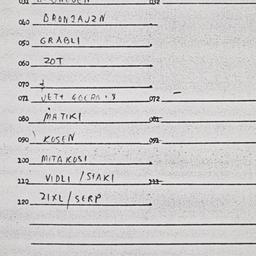 040 BRONZAJZN
050 GRABLI
060 ZOT
070
071 072
080 MATIKI 081
090 KOSEN 091
100 MITAKOSI
112 VIDLI / STAKI
120 ZIXL / SERP